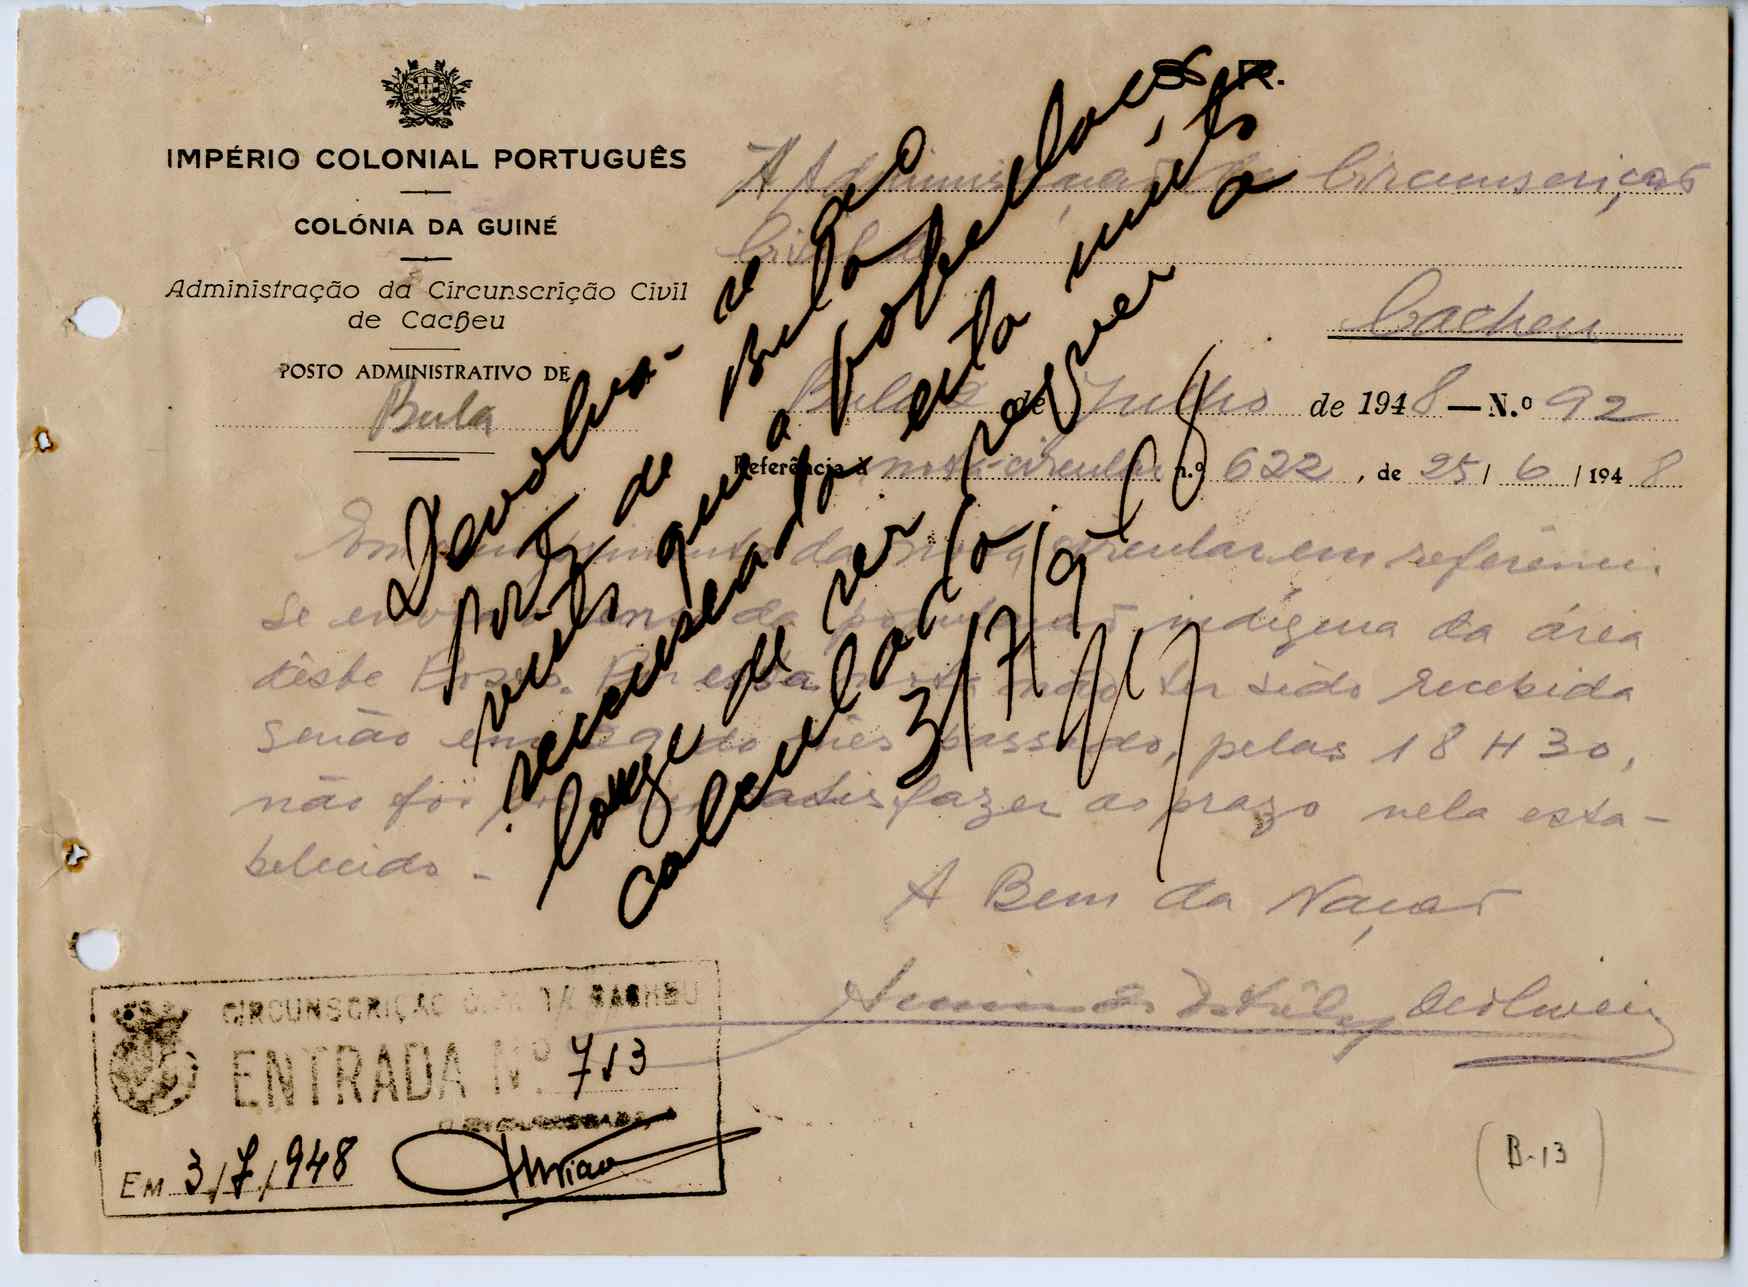 S. R.
IMPÉRIO COLONIAL PORTUGUÊS
COLÓNIA DA GUINÉ
Administração da Circunscrição Civil
de Cacheu
POSTO ADMINISTRATIVO DE
Bula
À Administração da Circunscrição
Civil de
Cacheu
Bula 2 de Julho de 1948 — N.º 92
Referência à nota-circular n.º 622, de 25/6/1948
Em cumprimento da nota circular em referência
se envia o censo da população indígena da área
dêste Posto. Por esta nota não ter sido recebida
senão em 29 do mês passado, pelas 18 H 30,
não foi possível satisfazer ao prazo nela esta-
belecido -
A Bem da Nação
Devolva-se ao
posto de Bula
visto que a população
recenseada está muito
longe de ser sequer a
calculada.
3/7/948
CIRCUNSCRIÇÃO CIVIL DE CACHEU
ENTRADA Nº 713
EM 3/7/948
(B-13)